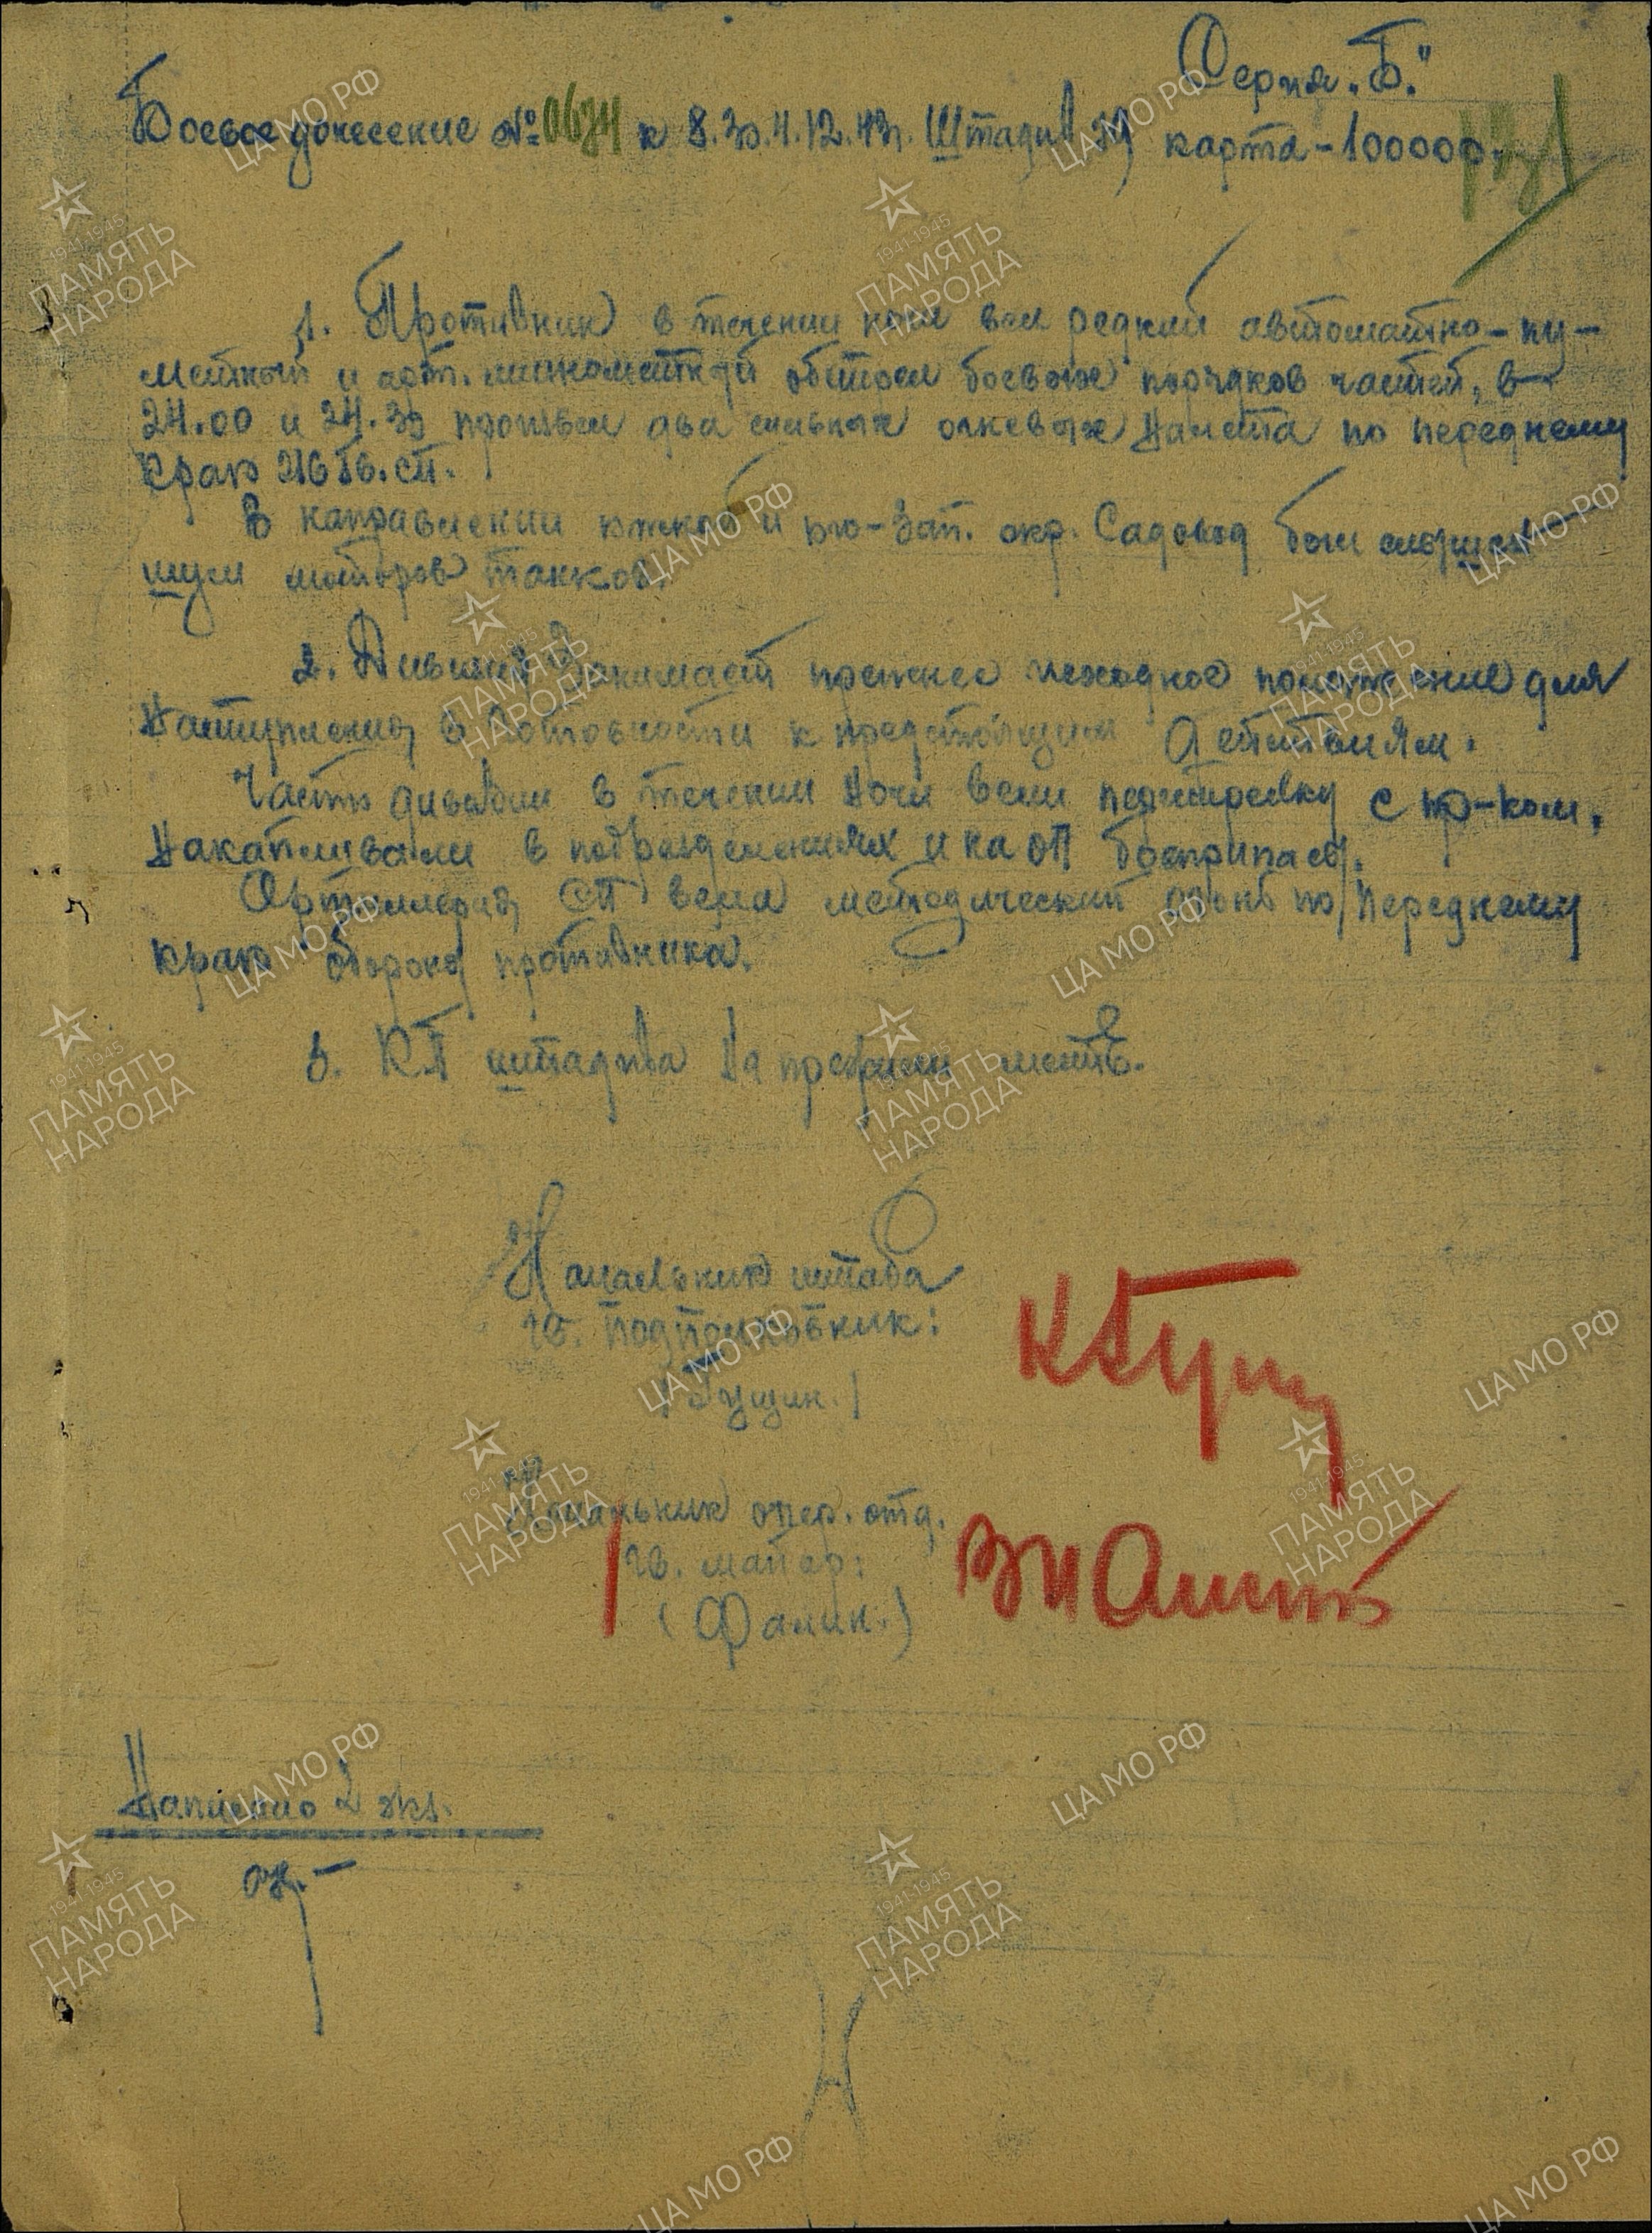 Серия „Б."
Боевое донесение № 0634 к 8.30. 4.12.43г. Штадив 79 карта - 100000.
1. Противник в течении ночи вел редкий автоматно-пу-
леметный и арт. минометный обстрел боевых порядков частей, в
24.00 и 24.30 произвел два сильных огневых налета по переднему
краю 216 гв. сп.
В направлении южной и юго-зап. окр. Садовод был слышен
шум моторов танков.
2. Дивизия занимает прежнее исходное положение для
наступления, в готовности к предстоящим действиям.
Части дивизии в течении ночи вели перестрелку с пр-ком,
накапливали в подразделениях и на ОП боеприпасы.
Артиллерия СП вела методический огонь по переднему
краю обороны противника.
3. КП штадива на прежнем месте.
Начальник штаба
гв. подполковник:
/ Гущин. /
Начальник опер. отд.
гв. майор:
( Фалин. )
Написано 2 экз.
ЦА МО РФ
1941-1945
ПАМЯТЬ
НАРОДА